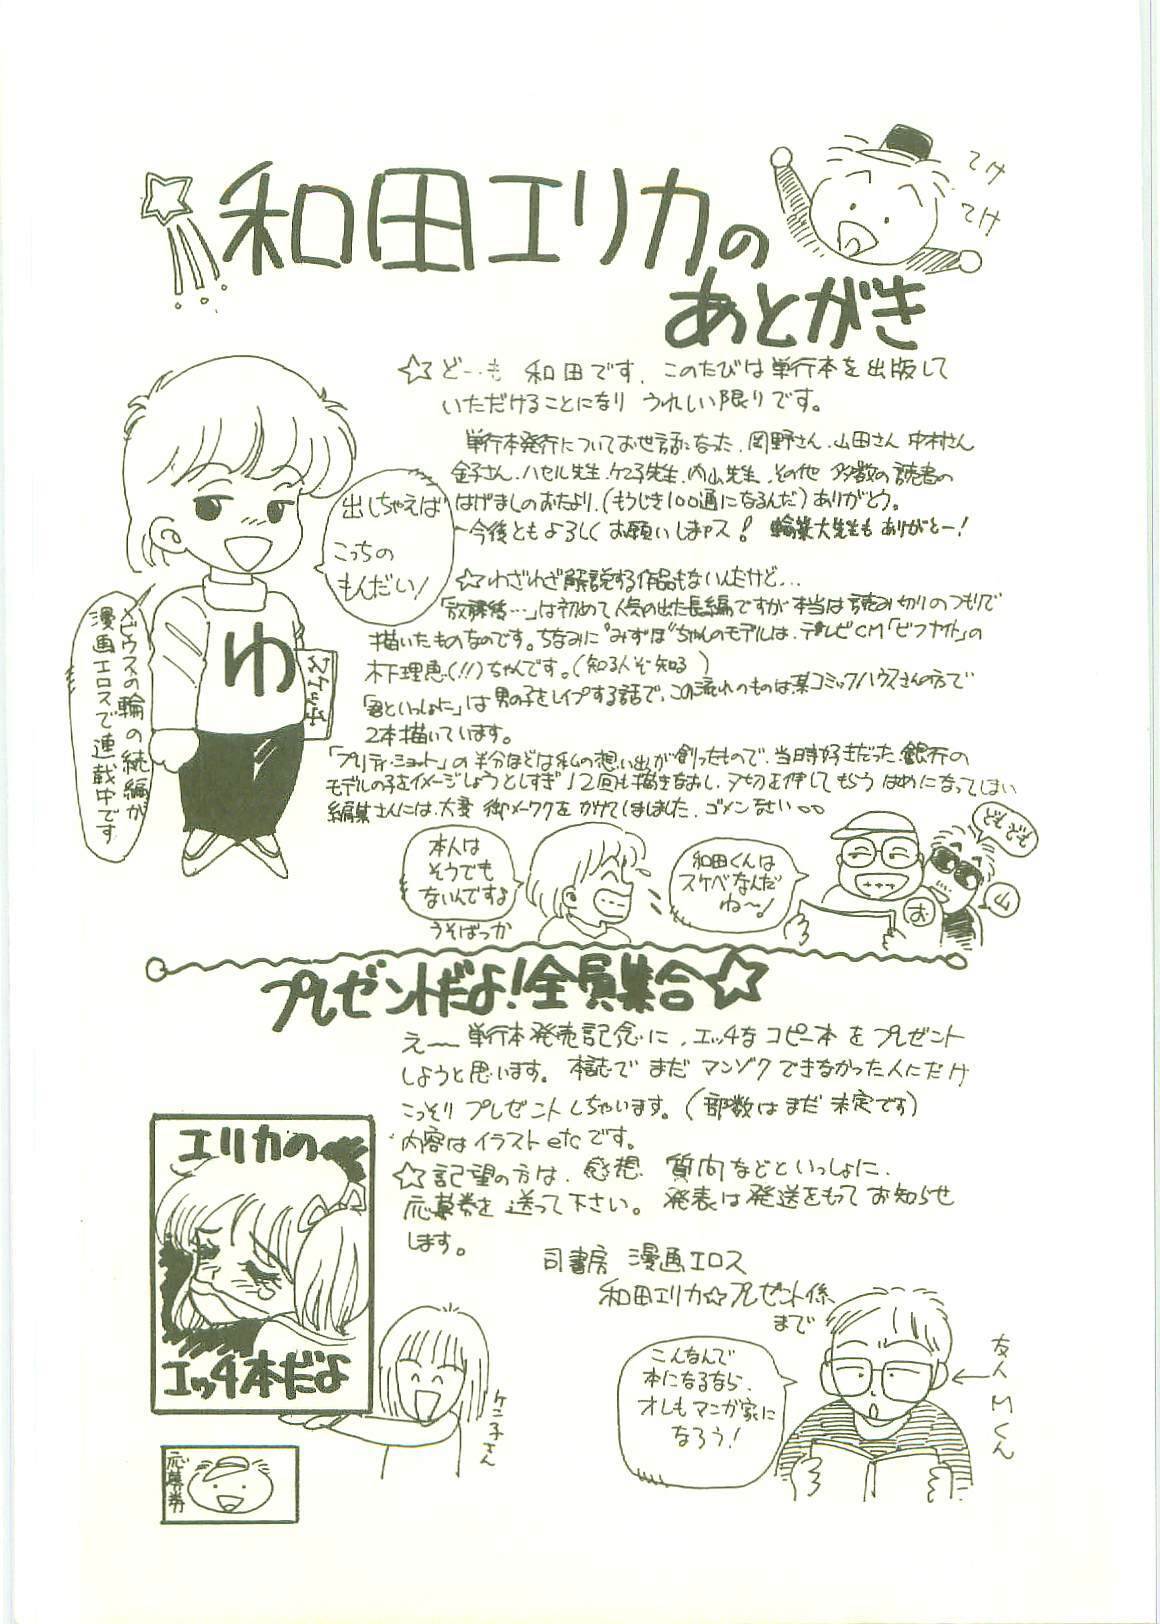 和田エリカの
あとがき
てけ
てけ
☆どーも 和田です。このたびは単行本を出版して
いただけることになり うれしい限りです。
単行本発行についてお世話になった、岡野さん、山田さん 中村さん
金子さん、ハセル先生、ケニ子先生、内山先生、その他 多数の読者の
はげましのおたより、(もうじき100通になるんだ)ありがとう。
〜今後ともよろしく お願いしまャス! 輪業大先生も ありがとー!
出しちゃえば
こっちの
もんだい!
ゆ
スケッチ
メビウスの輪の続編が
漫画エロスで連載中です
☆わざわざ解説する作品もないんだけど…
「放課後…」は初めて人気の出た長編ですが本当は読み切りのつもりで
描いたものなのです。ちなみに"みずほ"ちゃんのモデルは、テレビCM「ビフナイト」の
木下理恵(!!)ちゃんです。(知る人ぞ知る)
「君といっしょに」は男の子をレイプする話で、この流れのものは某コミックハウスさんの方で
2本描いています。
「プリティ・ショット」の半分ほどは私の想い出が創ったもので、当時好きだった銀行の
モデルの子をイメージしようとしすぎ12回も描きなおし、〆切を
編集さんには、大変 御メーワクを かけてしまいました、ゴメンなさい
本人は
そうでも
ないんですよ
うそばっか
和田くんは
スケベなんだ
ね〜!
どもども
お
山
プレゼントだよ!全員集合☆
え〜単行本発売記念に、エッチな コピー本 を プレゼント
しようと思います。本誌で まだ マンゾク できなかった人にだけ
こっそり プレゼント しちゃいます。(部数は まだ 未定です)
内容は イラスト etc です。
☆記望の方は、感想 質向などといっしょに、
応募券を 送って下さい。発表は発送をもって お知らせ
します。
司書房 漫画エロス
和田エリカ☆プレゼント係
まで
エリカの
エッチ本だよ
ケニ子さん
応募券
こんなんで
本になるなら、
オレもマンガ家に
なろう!
友人Mくん